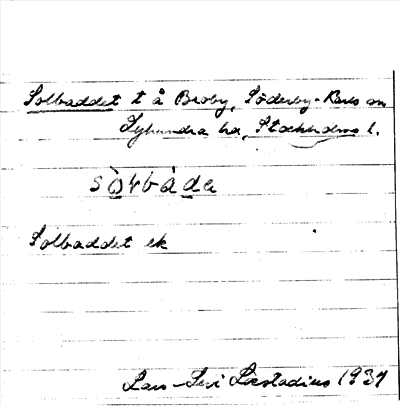 Solbaddet t å Broby, Söderby-Karls sn
Lyhundra hd, Stockholms l.
sò̱ɽbàda
Solbaddet ek
Lars-Levi Læstadius 1937